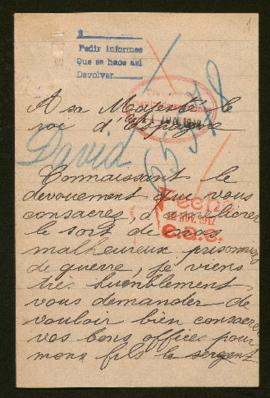 1
Pedir informes
Que se hace así
Devolver
A sa Majesté le
roi d'Espagne
David
Connaissant le
dévouement que vous
consacrez, à améliorer
le sort de ces
malheureux prisonniers
de guerre, je viens
très humblement
vous demander de
vouloir bien consacrer
vos bons offices pour
mons fils le sergent